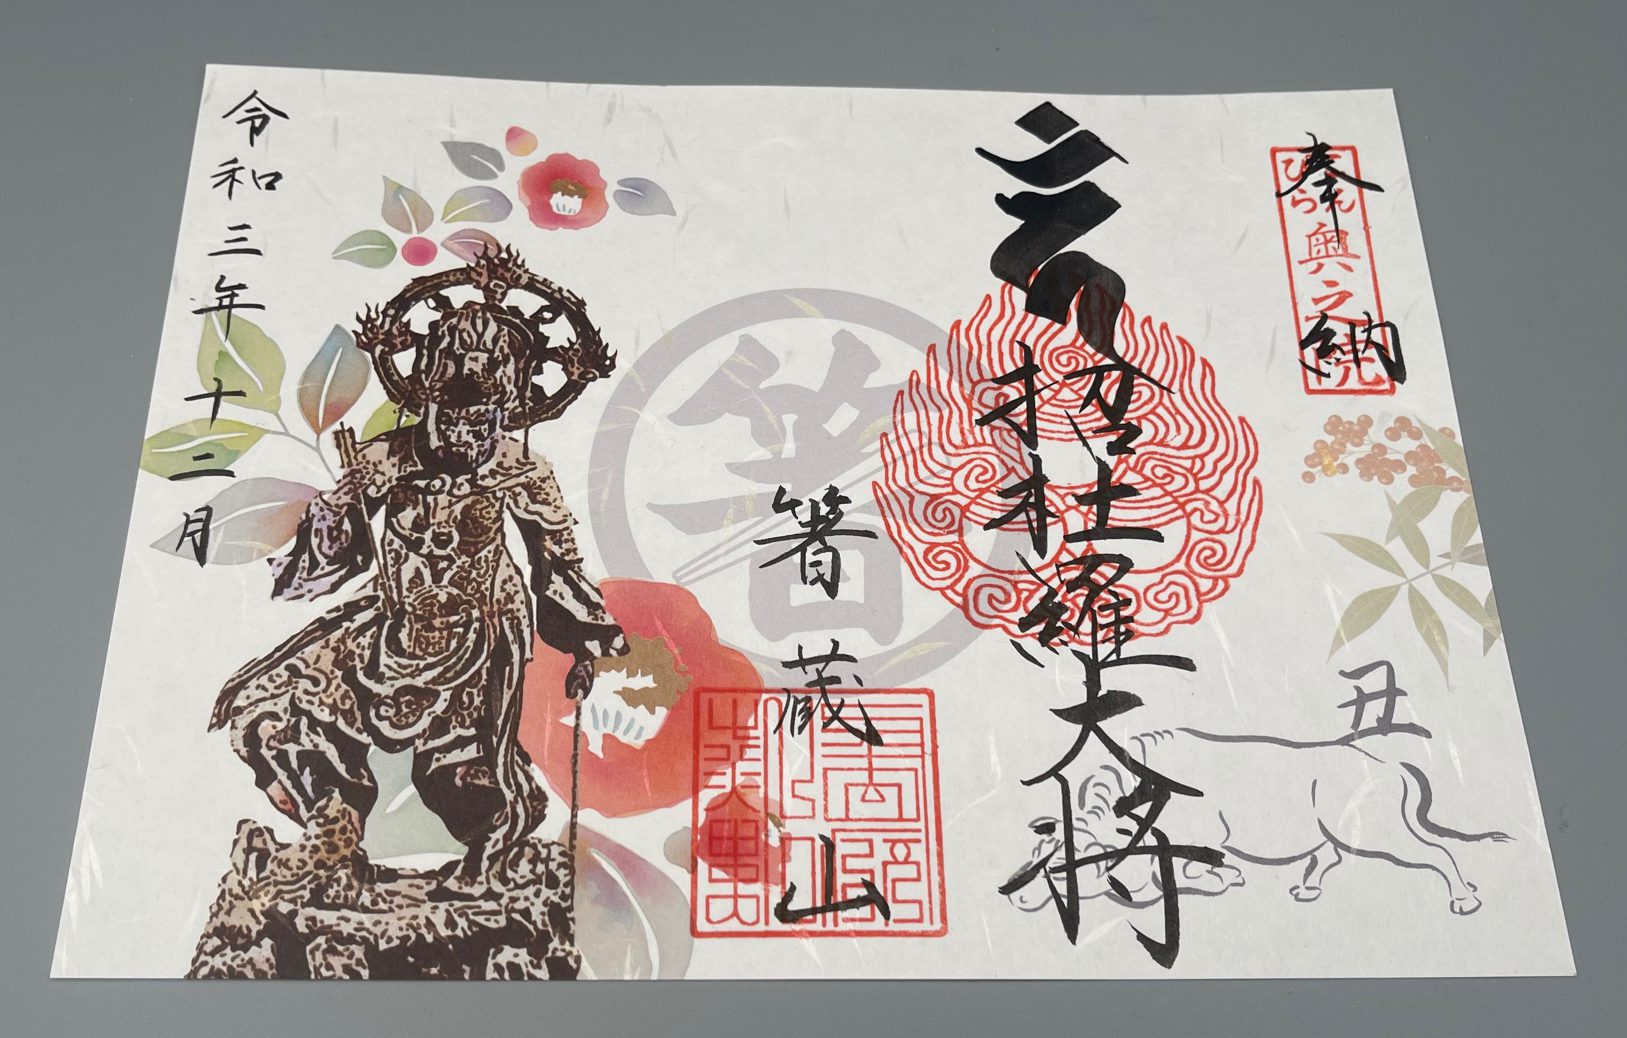 奉納
こんぴら
奥之院
招杜羅大将
丑
箸
箸蔵山
令和三年十二月